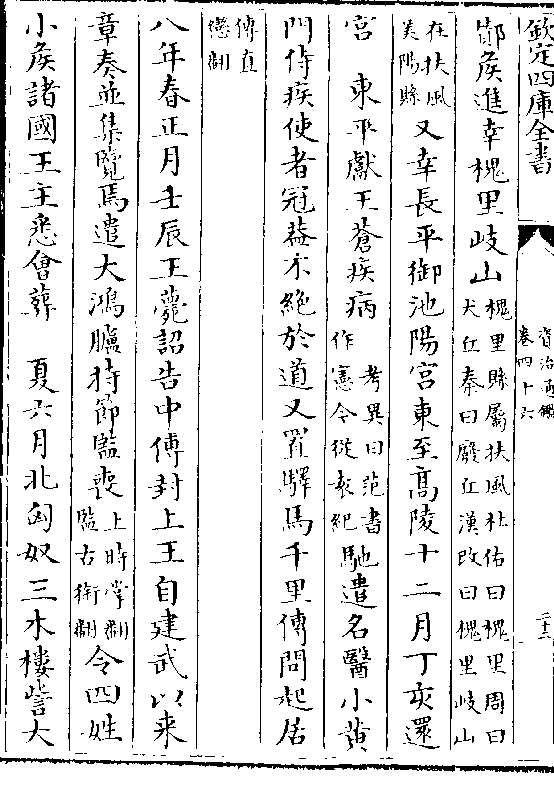 欽定四庫全書
資治通鑑
卷四十六
二十三
鄼侯進幸槐里岐山槐里縣屬扶風杜佑曰槐里周曰
犬丘秦曰廢丘漢改曰槐里岐山
在扶風
美陽縣又幸長平御池陽宫東至髙陵十二月丁亥還
宫 東平獻王蒼疾病考異曰范書
作憲令從袁紀馳遣名醫小黄
門侍疾使者冠葢不絶於道又置驛馬千里傳問起居
傳直
戀翻
八年春正月壬辰王薨詔告中傅封上王自建武以来
章奏並集覽焉遣大鴻臚持節監喪上時掌翻
監古銜翻令四姓
小侯諸國王主悉會葬 夏六月北匈奴三木樓訾大